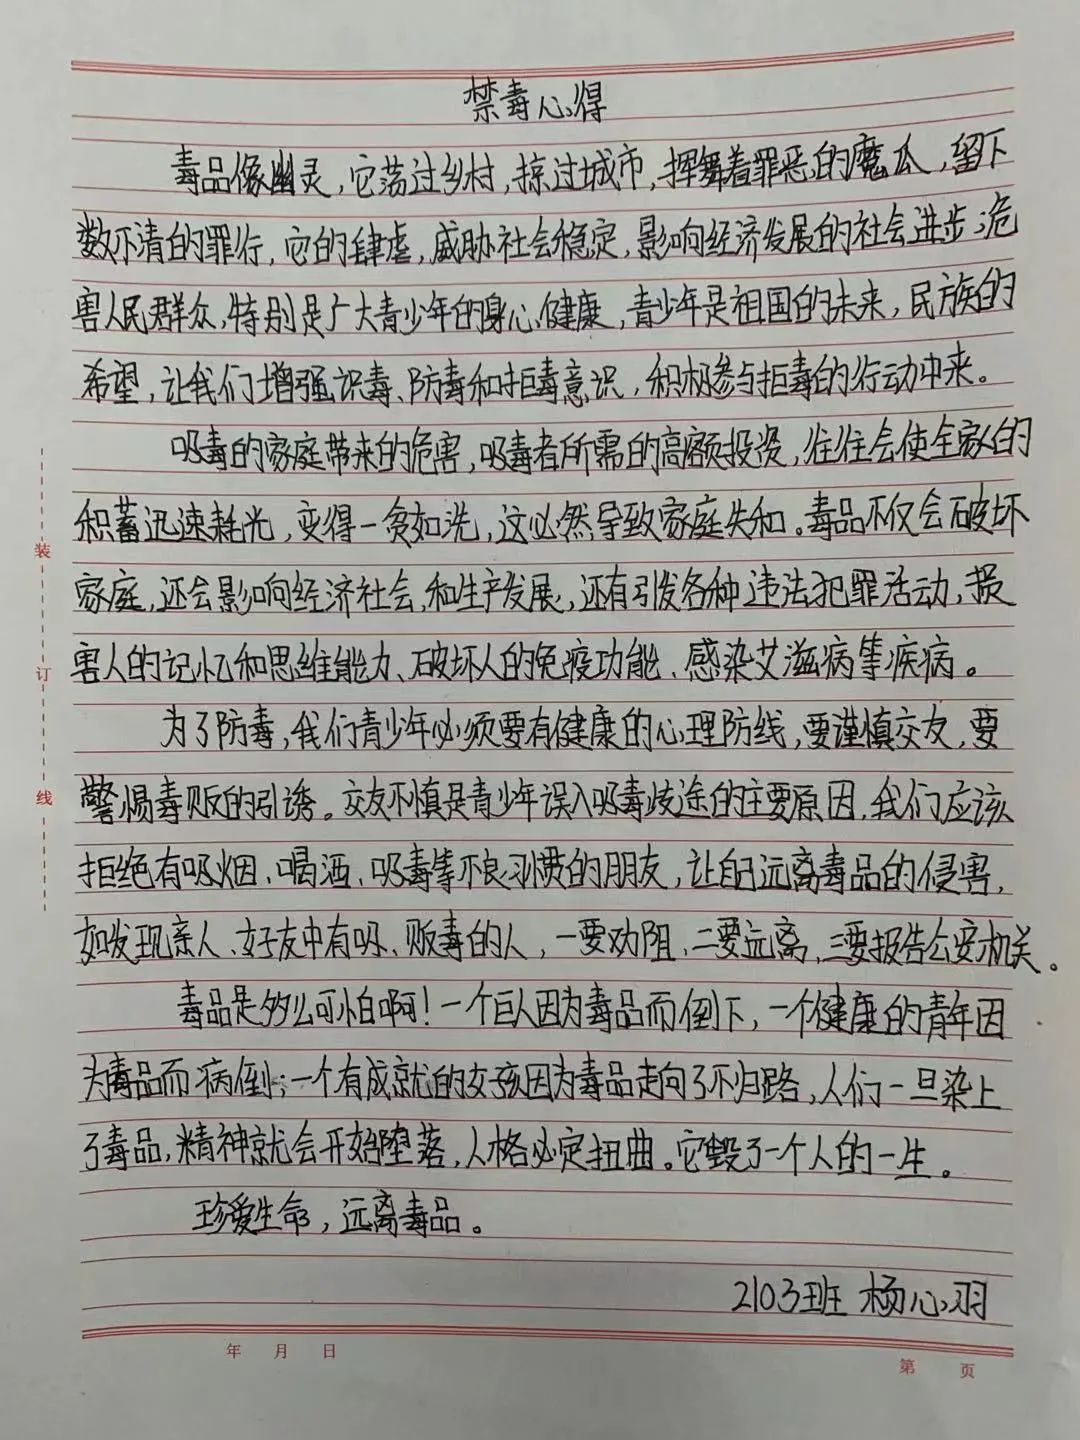 禁毒心得
毒品像幽灵，它荡过乡村，掠过城市，挥舞着罪恶的魔瓜，留下
数不清的罪行，它的肆虐，威胁社会稳定，影响经济发展的社会进步；危
害人民群众，特别是广大青少年的身心健康，青少年是祖国的未来，民族的
希望，让我们增强识毒、防毒和拒毒意识，积极参与拒毒的行动中来。
吸毒的家庭带来的危害，吸毒者所需的高额投资，往往会使全家人的
积蓄迅速耗光，变得一贫如洗，这必然导致家庭失和。毒品不仅会破坏
家庭，还会影响经济社会，和生产发展，还有引发各种违法犯罪活动，损
害人的记忆和思维能力、破坏人的免疫功能、感染艾滋病等疾病。
为了防毒，我们青少年必须要有健康的心理防线，要谨慎交友，要
警惕毒贩的引诱。交友不慎是青少年误入吸毒歧途的主要原因，我们应该
拒绝有吸烟、喝酒、吸毒等不良习惯的朋友，让自己远离毒品的侵害，
如发现亲人、好友中有吸、贩毒的人，一要劝阻，二要远离，三要报告公安机关。
毒品是多么可怕啊！一个巨人因为毒品而倒下，一个健康的青年因
为毒品而病倒；一个有成就的女孩因为毒品走向了不归路，人们一旦染上
了毒品，精神就会开始堕落，人格必定扭曲。它毁了一个人的一生。
珍爱生命，远离毒品。
2103班 杨心羽
装
订
线
年 月 日
第 页